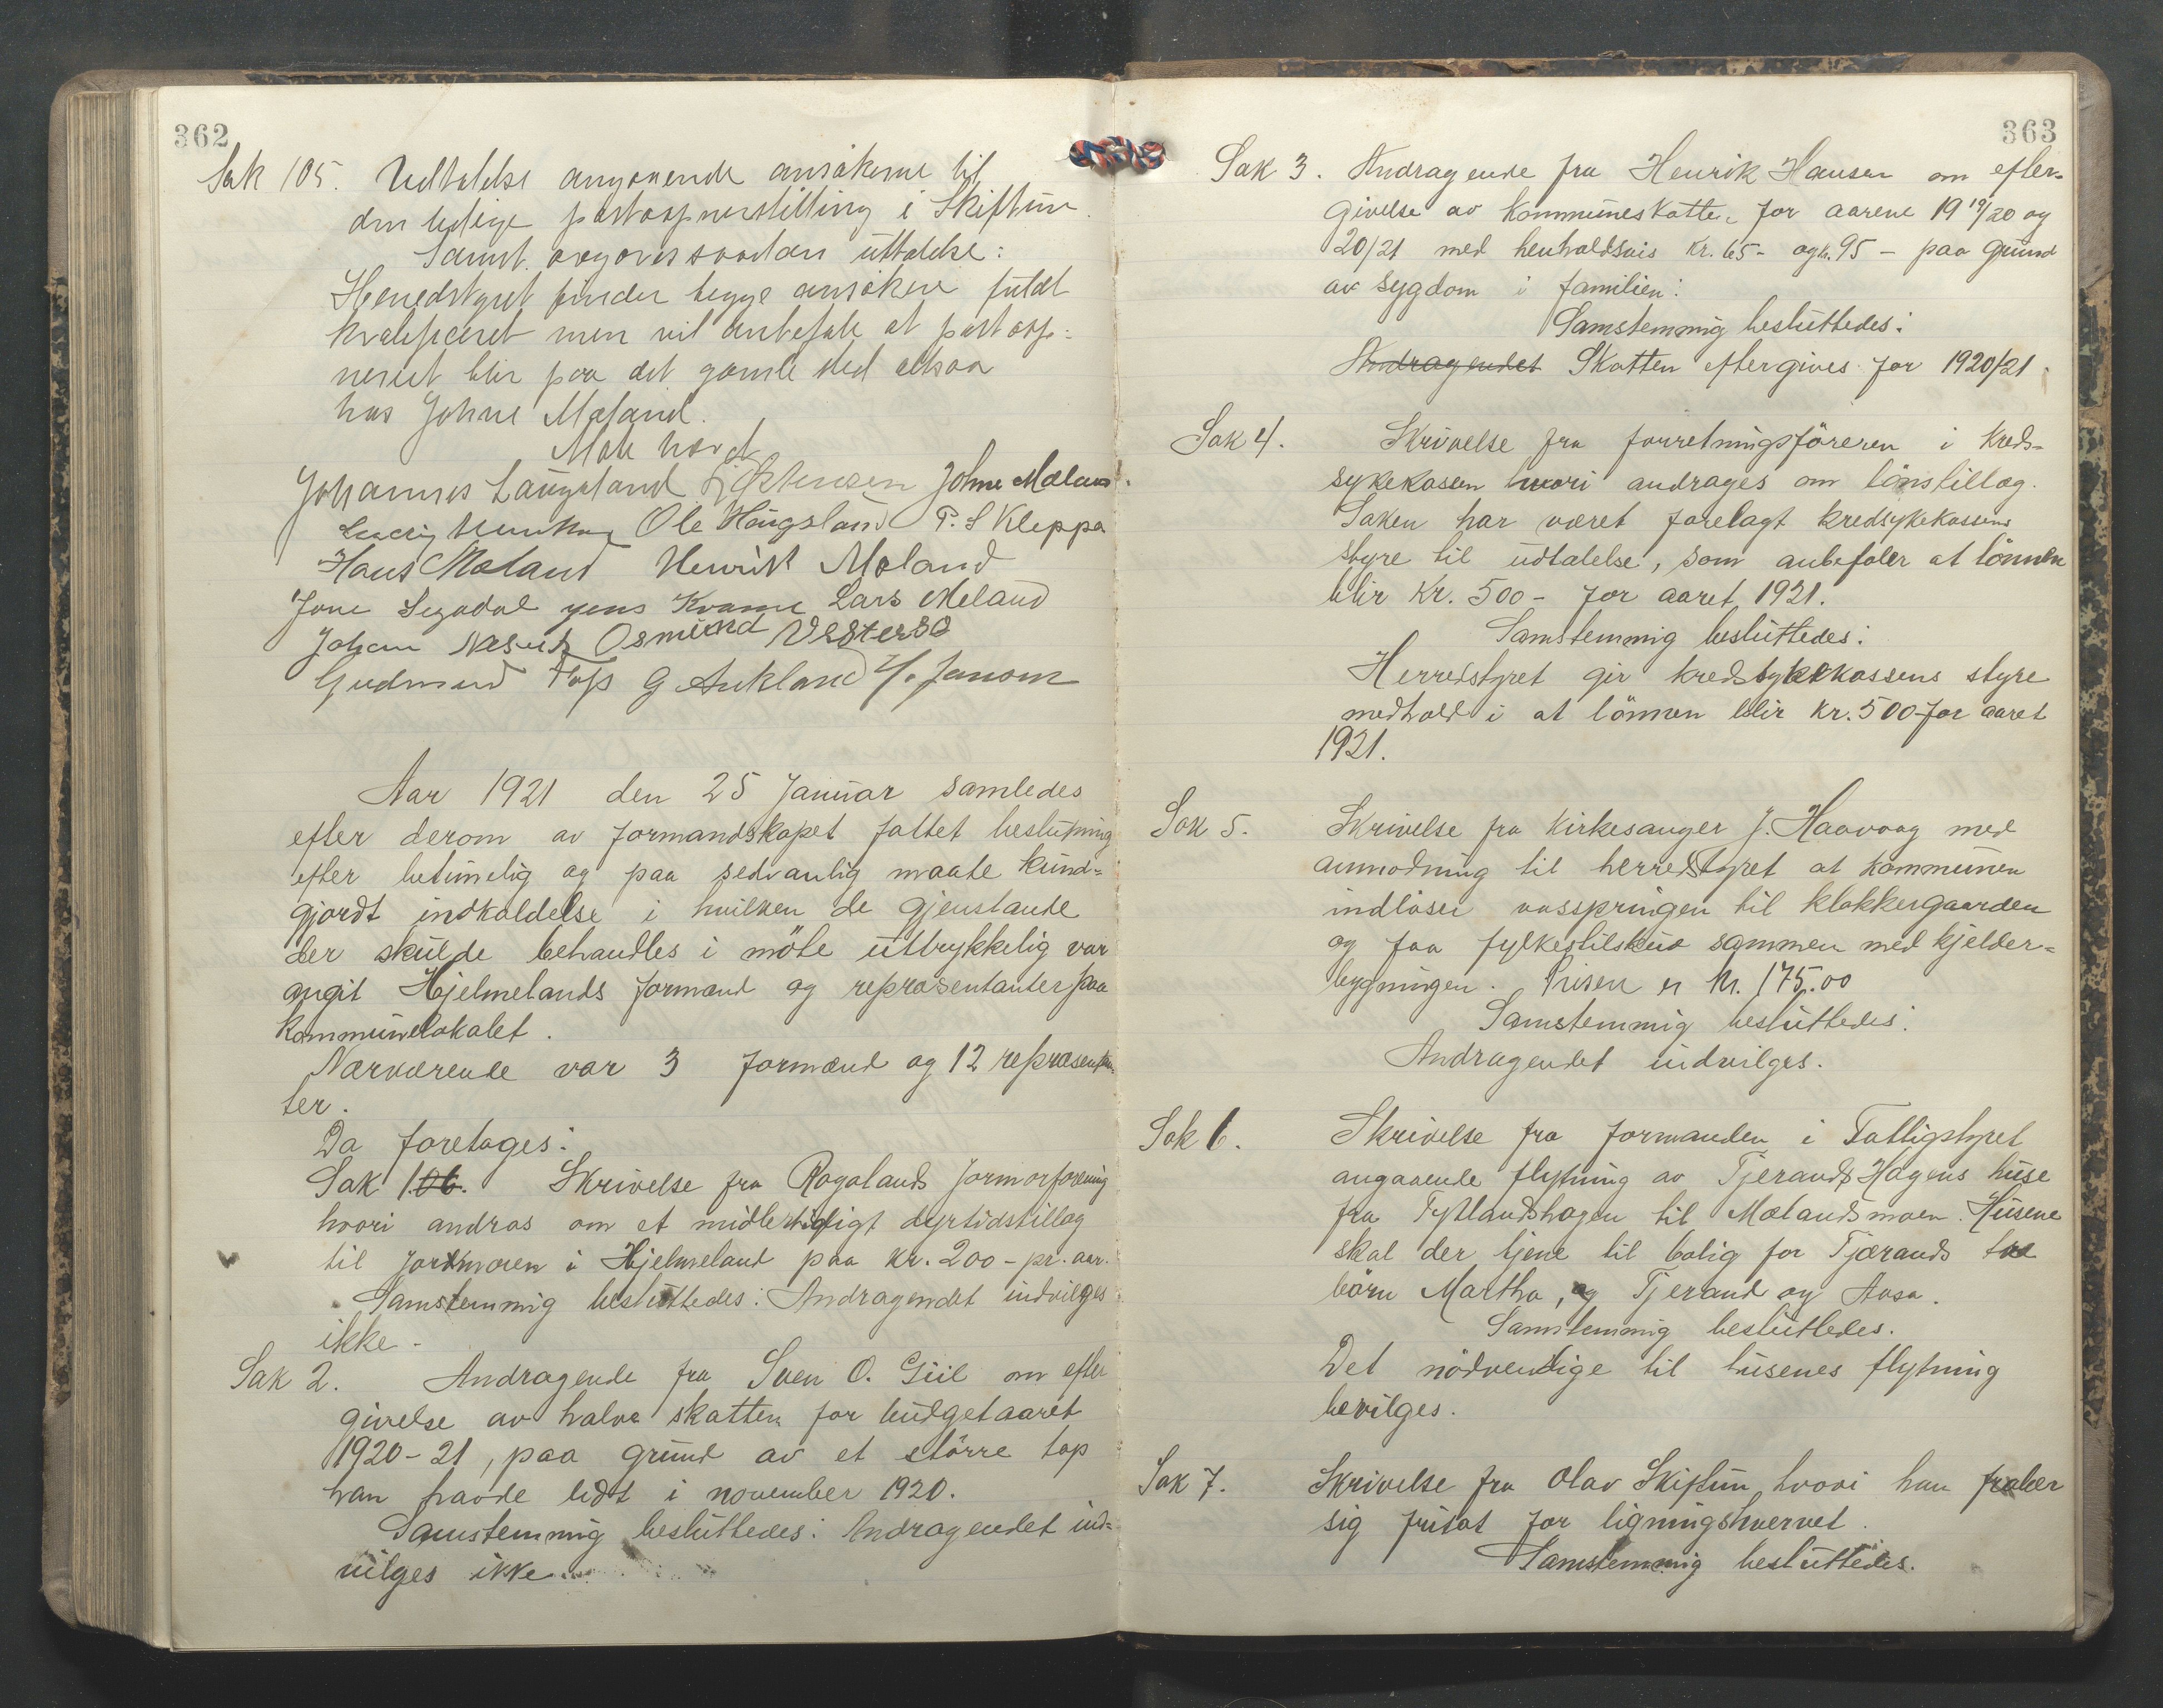 362
Sak 105. Udtalelse angaaende ansökerne til
den ledige postaapnerstilling i Skiftun.
Samst. avgaves saadan uttalelse:
Herredstyret finder begge ansökere fuldt
kvalificeret men vil anbefale at postaap-
neriet blir paa det gamle sted altsaa
hos Johne Mæland.
Møte hævet
Johannes Laugaland Johne Mæland.
Ole Haugsland P. S Kleppa
Hans Mæland Henrik Mæland
Jone Segadal Jens Kvame Lars Meland
Johan Nesvik Osmund Vestersö
Gudmund Foss G Aukland
Aar 1921 den 25 Januar samledes
efter derom av formandskapet fattet beslutning
efter betimelig og paa sedvanlig maate kund-
gjordt indkaldelse i hvilken de gjenstande
der skulde behandles i möte uttrykkelig var
angit Hjelmelands formænd og repræsentanter paa
kommunelokalet.
Nærværende var 3 formænd og 12 repræsentan-
ter.
Da foretages:
Sak 106. Skrivelse fra Rogalands Jormorforening
hvori andras om et midlertidigt dyrtidstillæg
til jordmoren i Hjelmeland paa kr. 200- pr. aar.
Samstemmig besluttedes: Andragendet indvilges
ikke -
Sak 2. Andragende fra Sven O. Giil om efter
givelse av halve skatten for budgetaaret
1920-21, paa grund av et större tap
han havde lidt i november 1920.
Samstemmig besluttedes: Andragendet ind-
vilges ikke
363
Sak 3. Andragende fra Henrik Hansen om efter-
givelse av kommuneskatten for aarene 1919/20 og
20/21 med henholdsvis kr. 65- og kr. 95 - paa grund
av sygdom i familien:
Samstemmig besluttedes:
Andragendet Skatten eftergives for 1920/21.
Sak 4. Skrivelse fra forretningsföreren i Kreds-
sykekassen hvori andrages om lönstillæg.
Saken har været forelagt kredsykekassens
styre til udtalelse, som anbefaler at lönnen
blir Kr. 500- for aaret 1921.
Samstemmig besluttedes:
Herredstyret gir kredsykekassens styre
medhold i at lönnen blir kr. 500- for aaret
1921.
Sak 5. Skrivelse fra Kirkesanger J. Haavaag med
anmodning til herredstyret at kommunen
indlöser vasspringen til klokkergaarden
og faa fylkestilskud sammen med kjelder-
bygningen. Prisen er kr. 175.00
Samstemmig besluttedes:
Andragendet indvilges.
Sak 6. Skrivelse fra formanden i Fattigstyret
angaaende flytning av Tjerands Hagens huse
fra Tytlandshagen til Mælandsmoen. Husene
skal der tjene til bolig for Tjærands tre
börn Martha, og Tjerand og Aasa.
Samstemmig besluttedes.
Det nödvendige til husenes flytning
bevilges.
Sak 7. Skrivelse fra Olav Skiftun hvori han frabeer
sig fritat for ligningshvervet.
Samstemmig besluttedes.